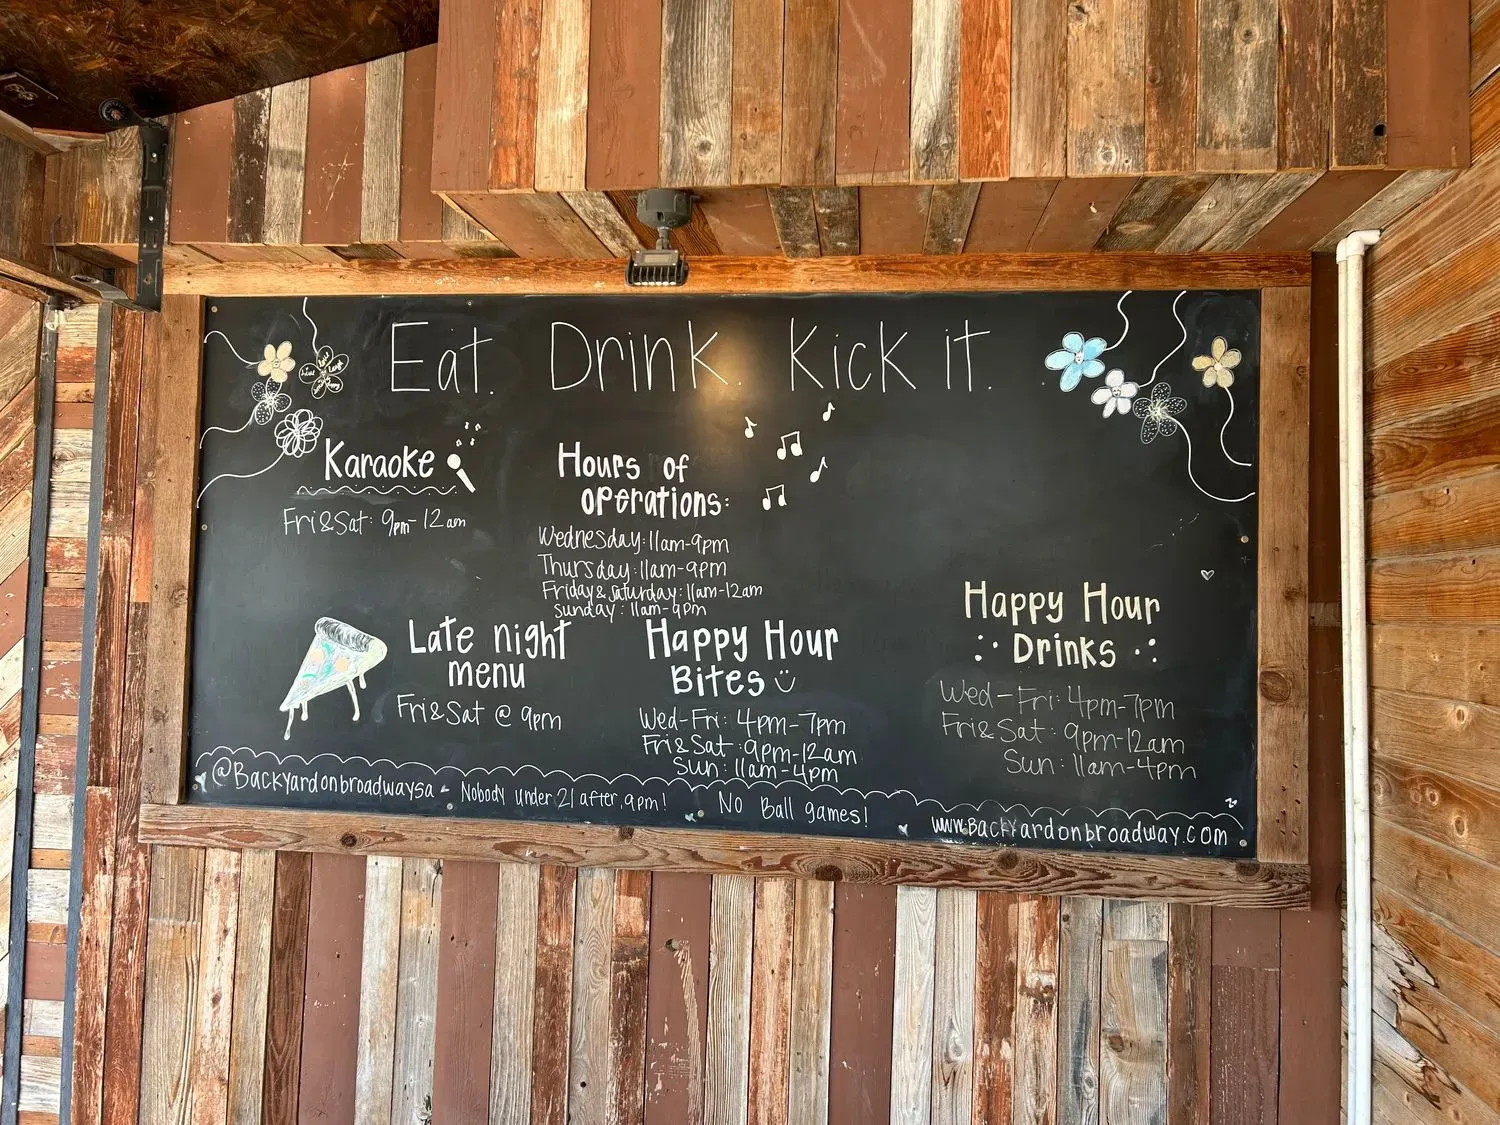 Eat. Drink. Kick it.
Karaoke
Fri & Sat: 9pm-12am
Hours of
operations:
Wednesday: 11am-9pm
Thursday: 11am-9pm
Friday & Saturday: 11am-12am
Sunday: 11am-9pm
Late night
menu
Fri & Sat @ 9pm
Happy Hour
Bites
Wed-Fri: 4pm-7pm
Fri & Sat: 9pm-12am
Sun: 11am-4pm
Happy Hour
Drinks
Wed-Fri: 4pm-7pm
Fri & Sat: 9pm-12am
Sun: 11am-4pm
@Backyardonbroadwaysa
Nobody under 21 after 9pm!
No Ball games!
www.Backyardonbroadway.com